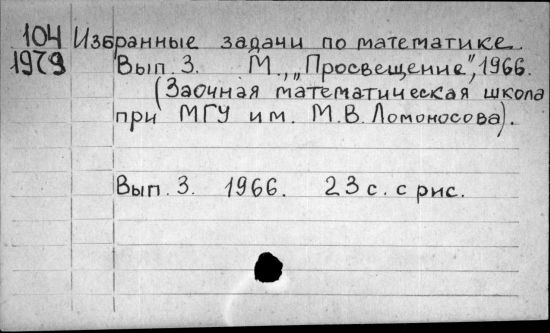 104 Избранные задачи по математике.
1979 Вып. 3. М., „Просвещение", 1966.
(Заочная математическая школа
при МГУ им. М.В. Ломоносова).
Вып. 3. 1966. 23 с. с рис.